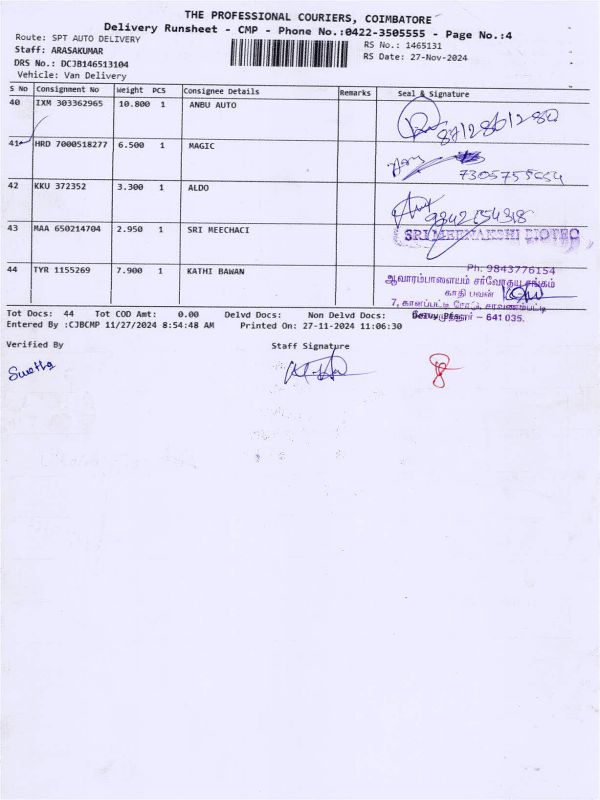 THE PROFESSIONAL COURIERS, COIMBATORE
Delivery Runsheet - CMP - Phone No.:0422-3505555 - Page No.:4
Route: SPT AUTO DELIVERY
RS No.: 1465131
Staff: ARASAKUMAR
RS Date: 27-Nov-2024
DRS No.: DCJB146513104
Vehicle: Van Delivery
S No Consignment No Weight PCS Consignee Details Remarks Seal & Signature
40 IXM 303362965 10.800 1 ANBU AUTO
41 HRD 7000518277 6.500 1 MAGIC
7305755654
42 KKU 372352 3.300 1 ALDO
43 MAA 650214704 2.950 1 SRI MEECHACI
SRI MEENAKSHI BIOTEC
44 TYR 1155269 7.900 1 KATHI BAWAN
Ph: 9843776154
ஆவாரம்பாளையம் சர்வோதய சங்கம்
காதி பவன்
7, காளப்பட்டி ரோடு, சரவணம்பட்டி
– 641 035.
Tot Docs: 44 Tot COD Amt: 0.00 Delvd Docs: Non Delvd Docs:
Entered By :CJBCMP 11/27/2024 8:54:48 AM Printed On: 27-11-2024 11:06:30
Verified By Staff Signature
Swetha